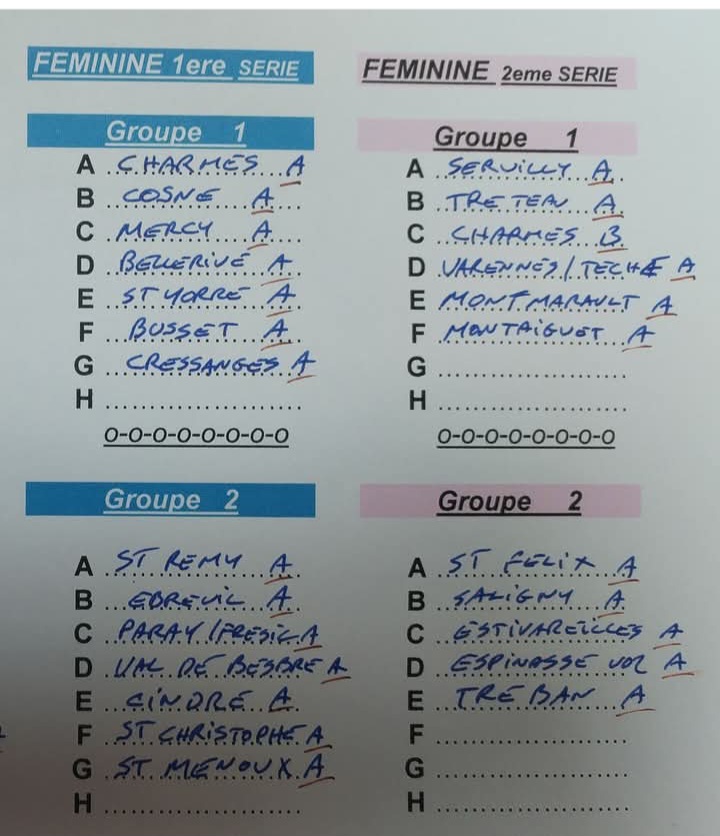 FEMININE 1ere SERIE
Groupe 1
A CHARMES A
B COSNE A
C MERCY A
D BELLERIVE A
E ST YORRE A
F BUSSET A
G CRESSANGES A
H
O-O-O-O-O-O-O-O
Groupe 2
A ST REMY A
B EBREUIL A
C PARAY / FRESIL A
D VAL DE BESBRE A
E CINDRÉ A
F ST CHRISTOPHE A
G ST. MENOUX A
H
FEMININE 2eme SERIE
Groupe 1
A SERVILLY A
B TRETEAU A
C CHARMES B
D VARENNES / TECHE A
E MONTMARAULT A
F MONTAIGUET A
G
H
O-O-O-O-O-O-O-O
Groupe 2
A ST FELIX A
B SALIGNY A
C ESTIVAREILLES A
D ESPINASSE VOZ A
E TREBAN A
F
G
H